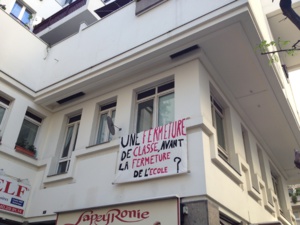 UNE FERMETURE
DE CLASSE, AVANT
LA FERMETURE
DE L'ÉCOLE ?
ELF
Lapeyronie